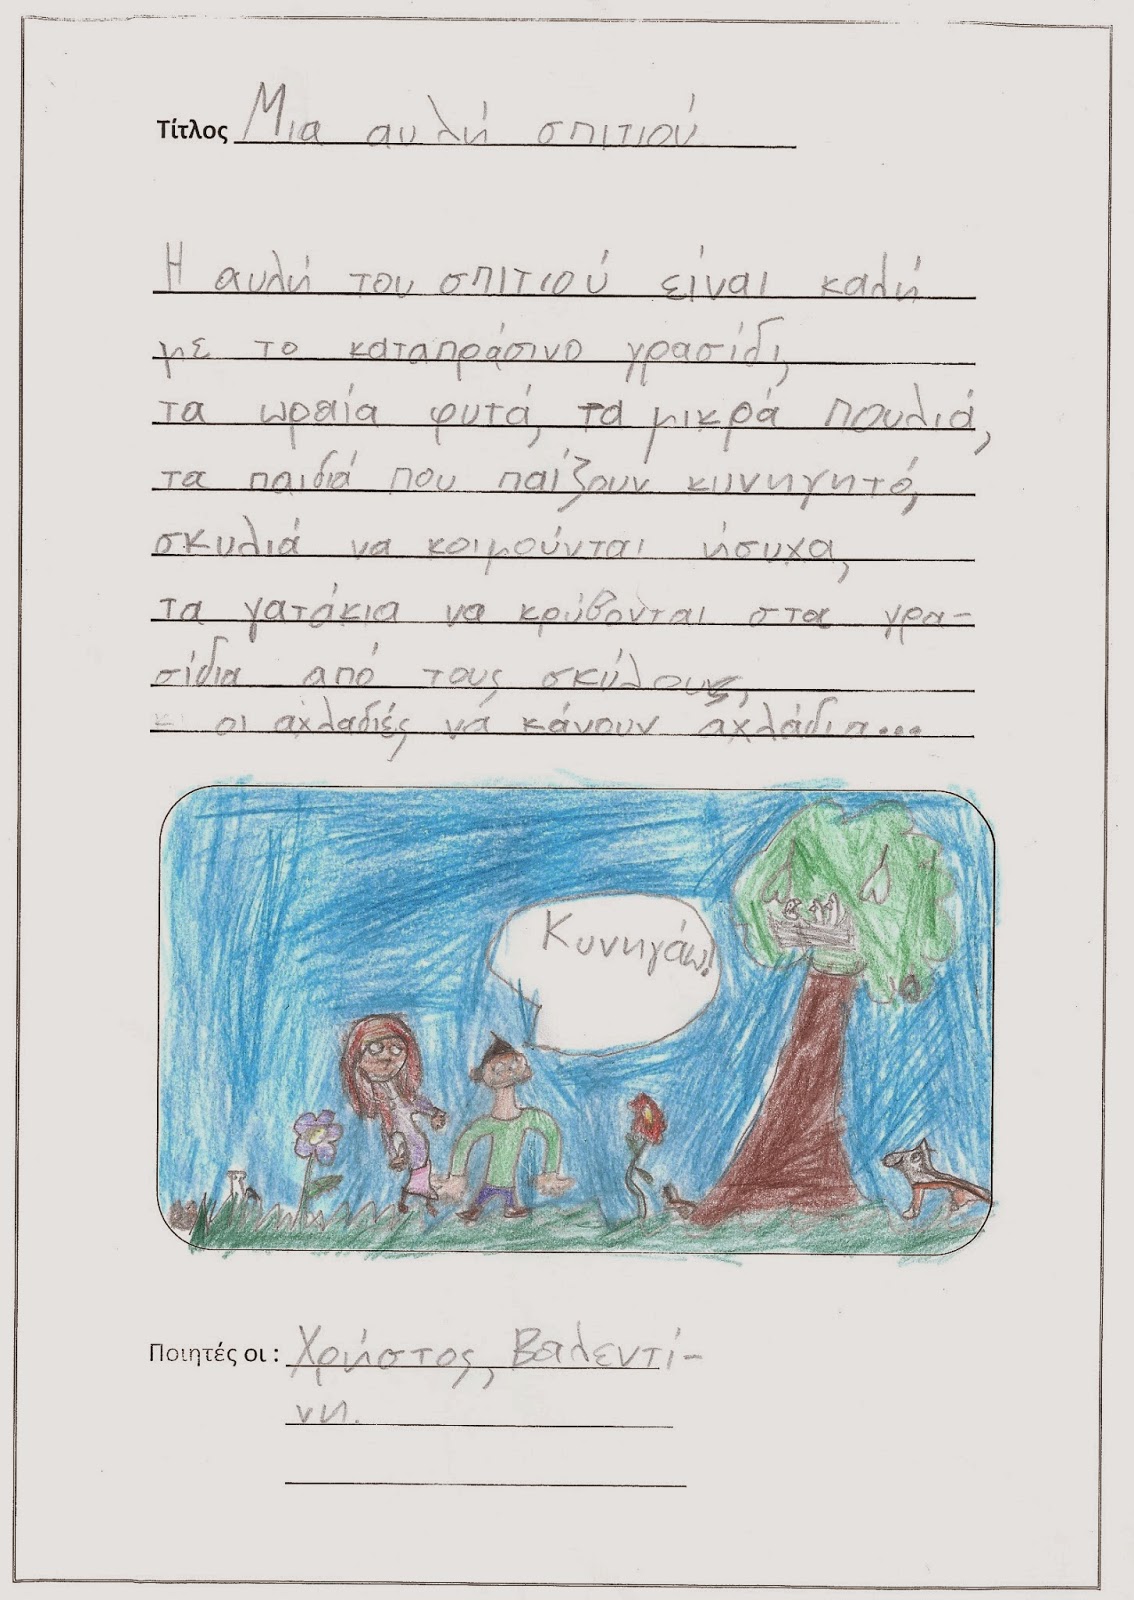 Τίτλος Μια αυλή σπιτιού
Η αυλή του σπιτιού είναι καλή
με το καταπράσινο γρασίδι,
τα ωραία φυτά, τα μικρά πουλιά,
τα παιδιά που παίζουν κυνηγητό,
σκυλιά να κοιμούνται ήσυχα,
τα γατάκια να κρύβονται στα γρα-
σίδια από τους σκύλους,
κι οι αχλαδιές να κάνουν αχλάδια...
Κυνηγάω!
Ποιητές οι : Χρήστος, Βαλεντί-
νη.